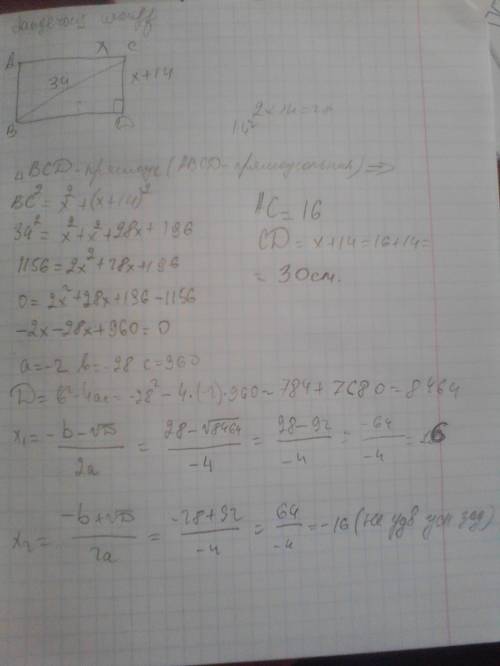 A X C
34 x+14
B D
△BCD - прямоуг (ABCD - прямоугольник) ⇒
BC² = x² + (x+14)²
34² = x² + x² + 28x + 196
1156 = 2x² + 28x + 196
0 = 2x² + 28x + 196 - 1156
-2x - 28x + 960 = 0
a = -2 b = -28 c = 960
D = b² - 4ac = -28² - 4·(-2)·960 = 784 + 7680 = 8464
x₁ = (-b - √D)/2a = (28 - √8464)/-4 = (28 - 92)/-4 = -64/-4 = 16
x₂ = (-b + √D)/2a = (-28 + 92)/-4 = 64/-4 = -16 (не удв усл зад)
AC = 16
CD = x + 14 = 16 + 14 =
= 30см.